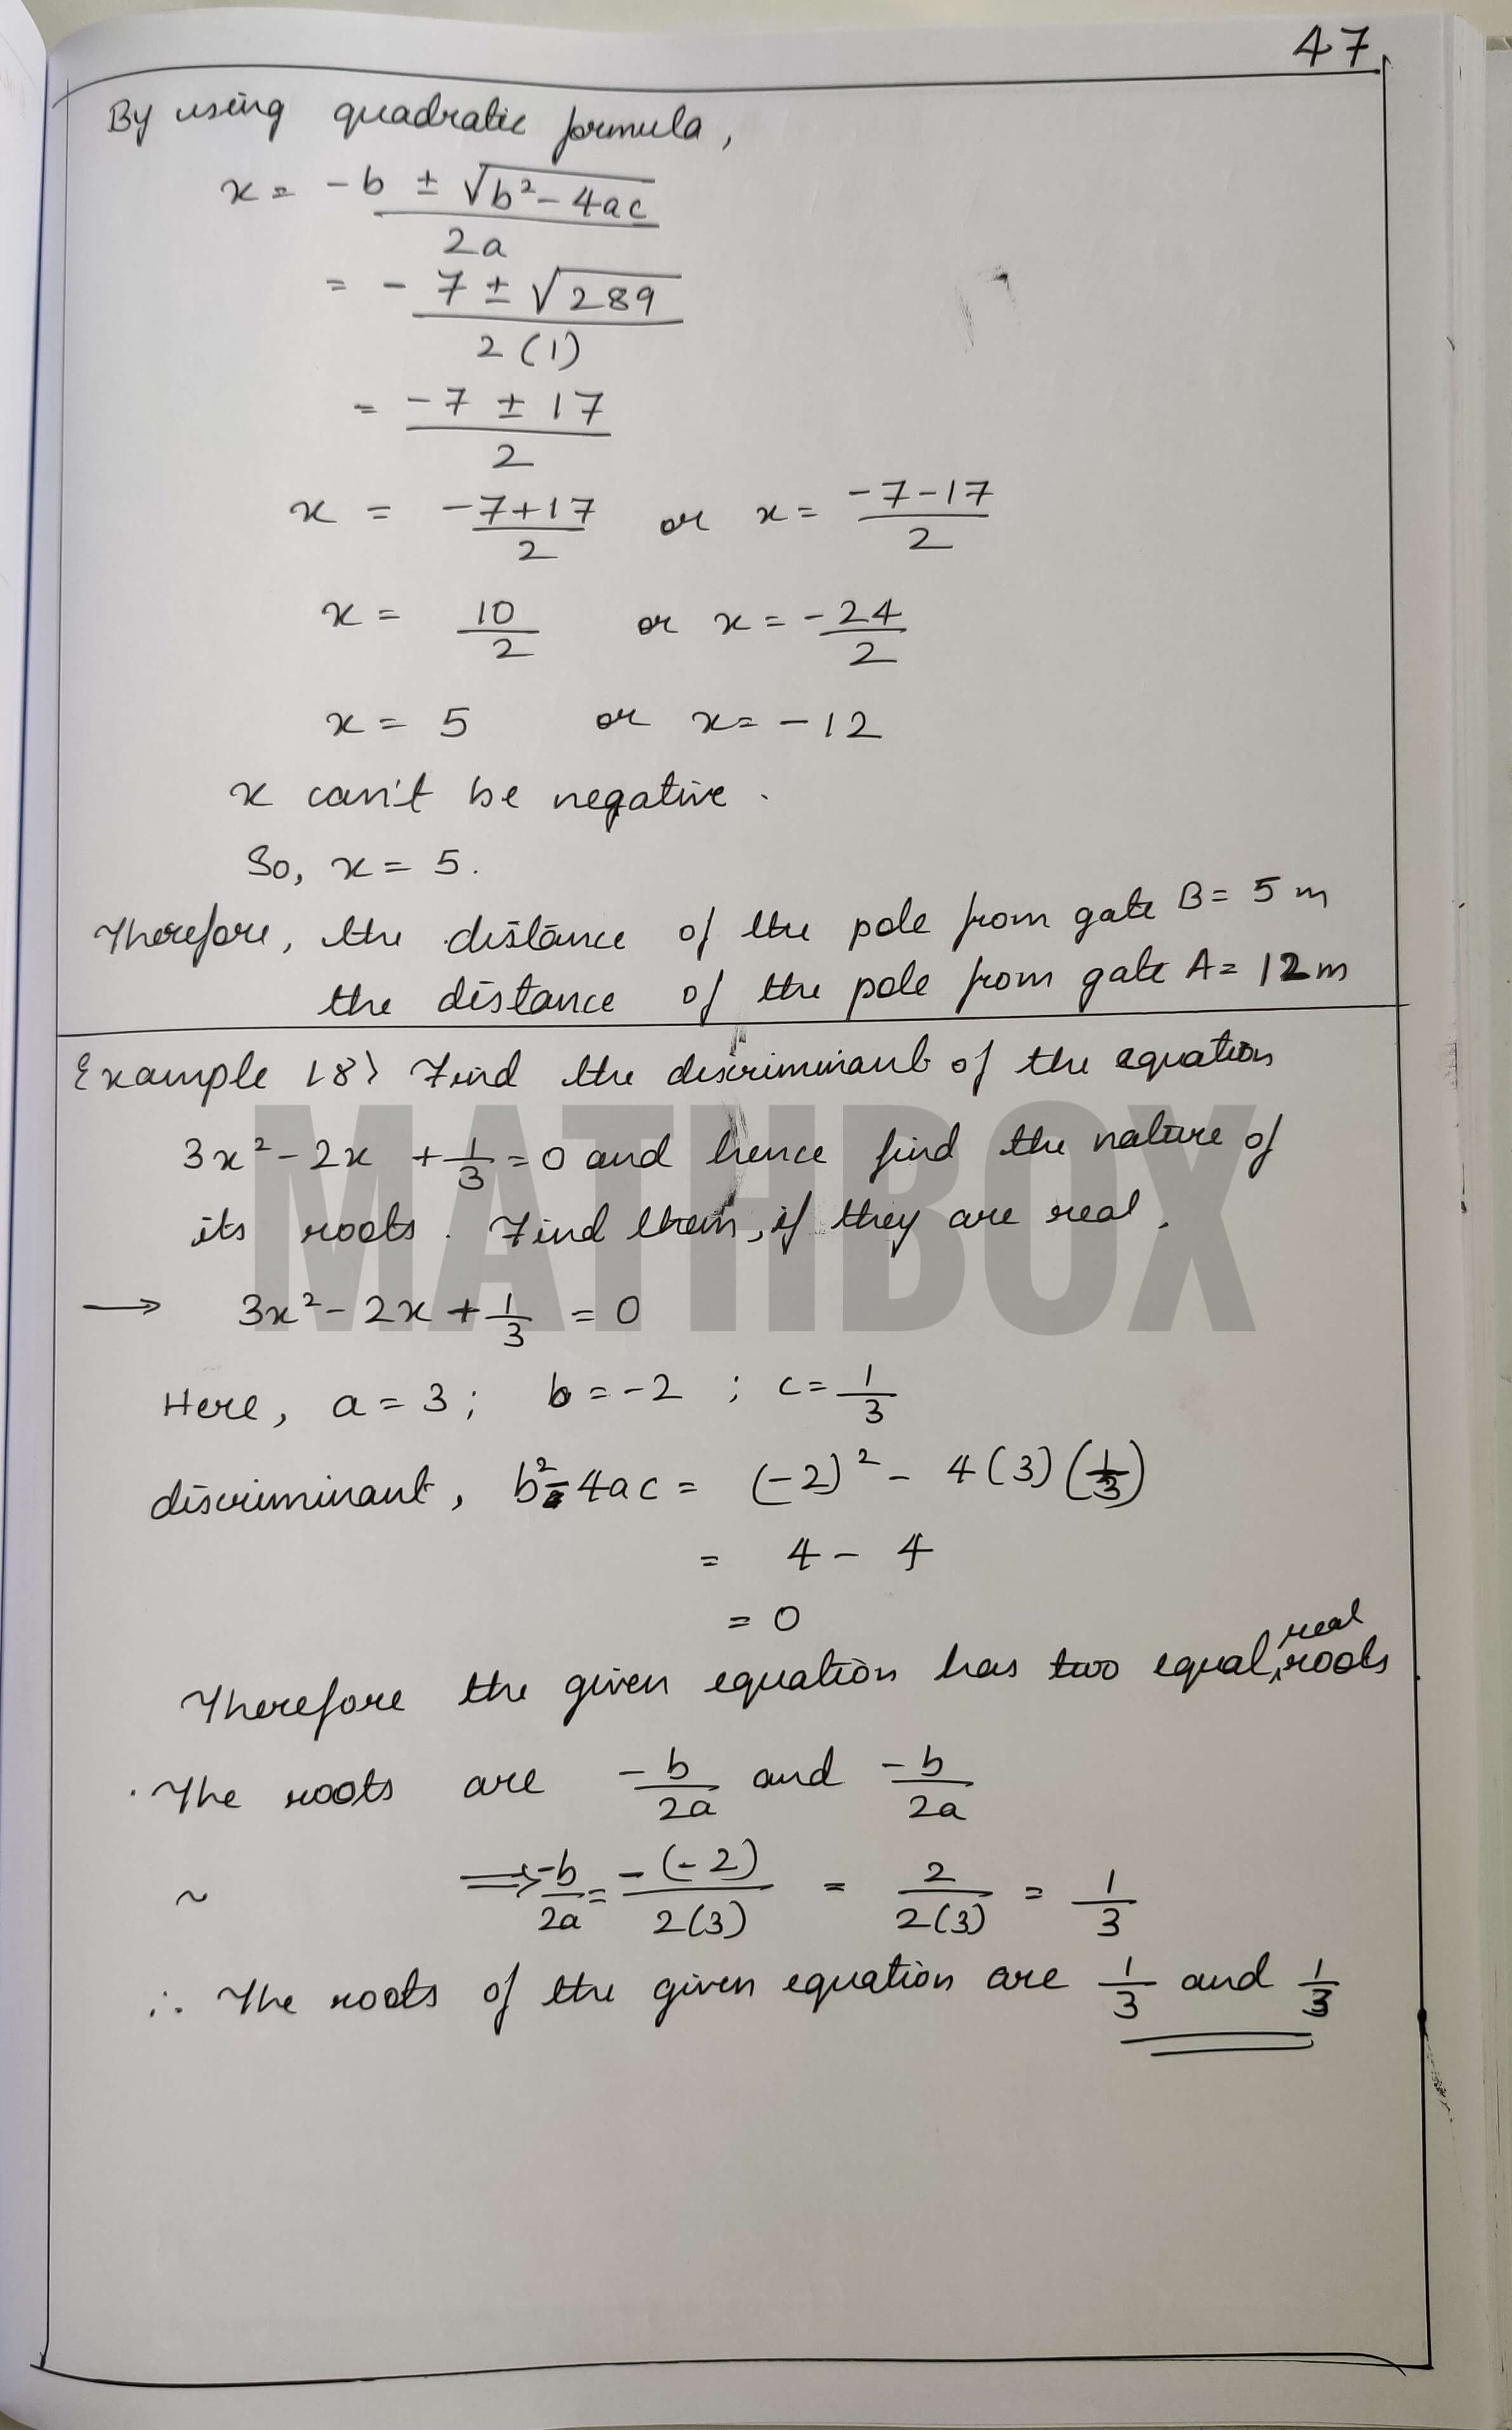 47
By using quadratic formula,
x = -b ± √b² - 4ac / 2a
= - 7 ± √289 / 2(1)
= -7 ± 17 / 2
x = -7+17 / 2 or x = -7-17 / 2
x = 10/2 or x = -24/2
x = 5 or x = -12
x can't be negative.
So, x = 5.
Therefore, the distance of the pole from gate B = 5 m
the distance of the pole from gate A = 12 m
Example 18> Find the discriminant of the equation
3x² - 2x + 1/3 = 0 and hence find the nature of
its roots. Find them, if they are real.
MATHBOX
→ 3x² - 2x + 1/3 = 0
Here, a = 3; b = -2 ; c = 1/3
discriminant, b² - 4ac = (-2)² - 4(3)(1/3)
= 4 - 4
= 0
Therefore the given equation has two equal, real roots.
The roots are -b/2a and -b/2a
~ ⇒ -b/2a = -(-2)/2(3) = 2/2(3) = 1/3
∴ The roots of the given equation are 1/3 and 1/3